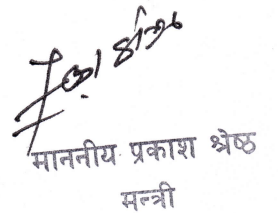 माननीय प्रकाश श्रेष्ठ
मन्त्री